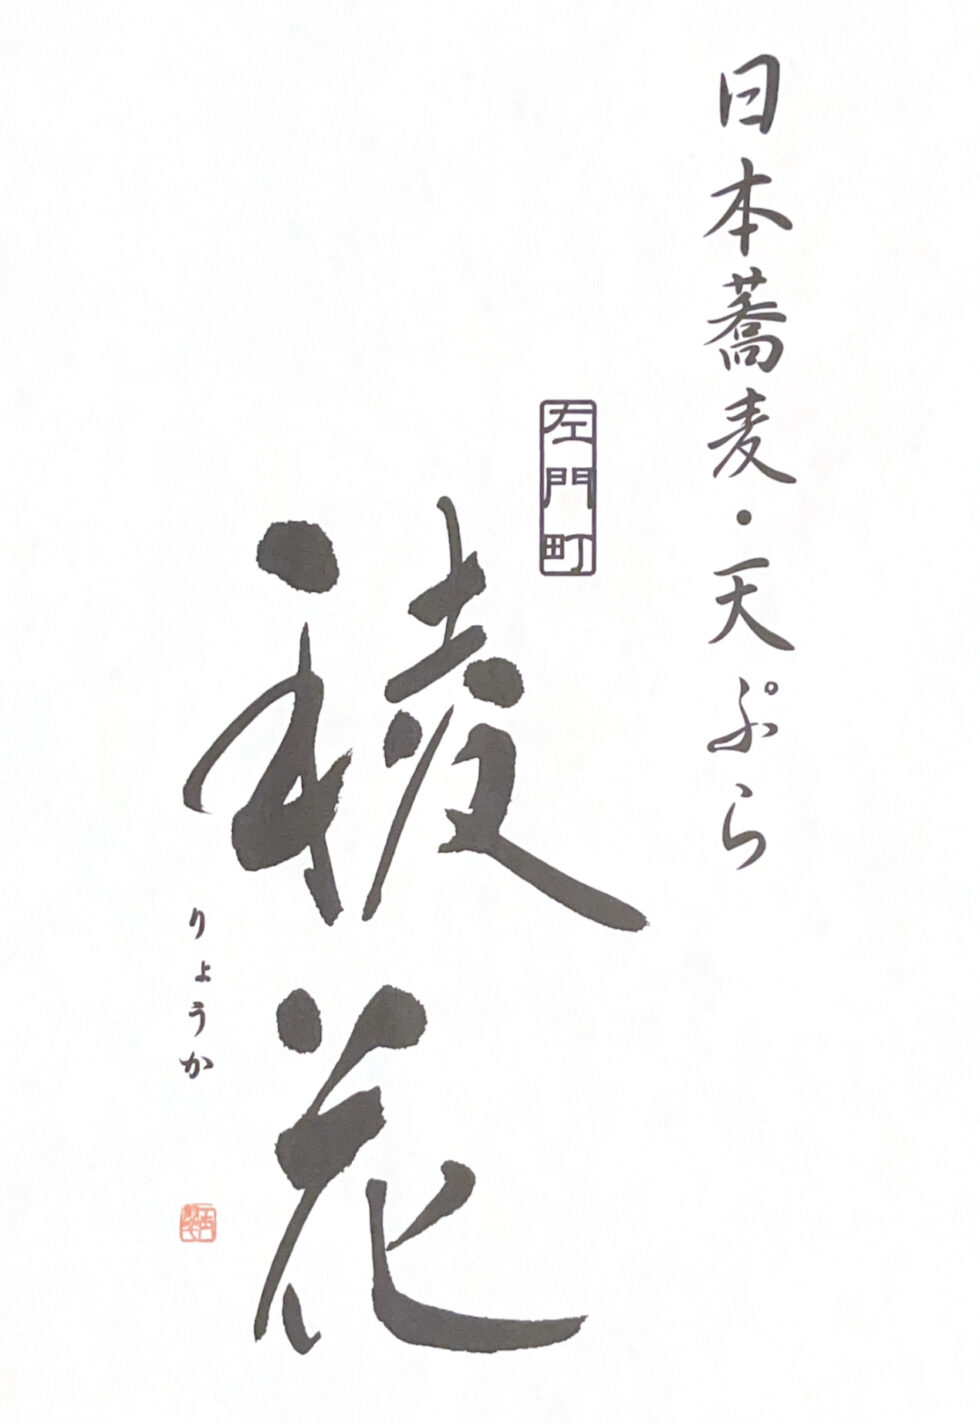 日本蕎麦・天ぷら
左門町
稜花
りょうか